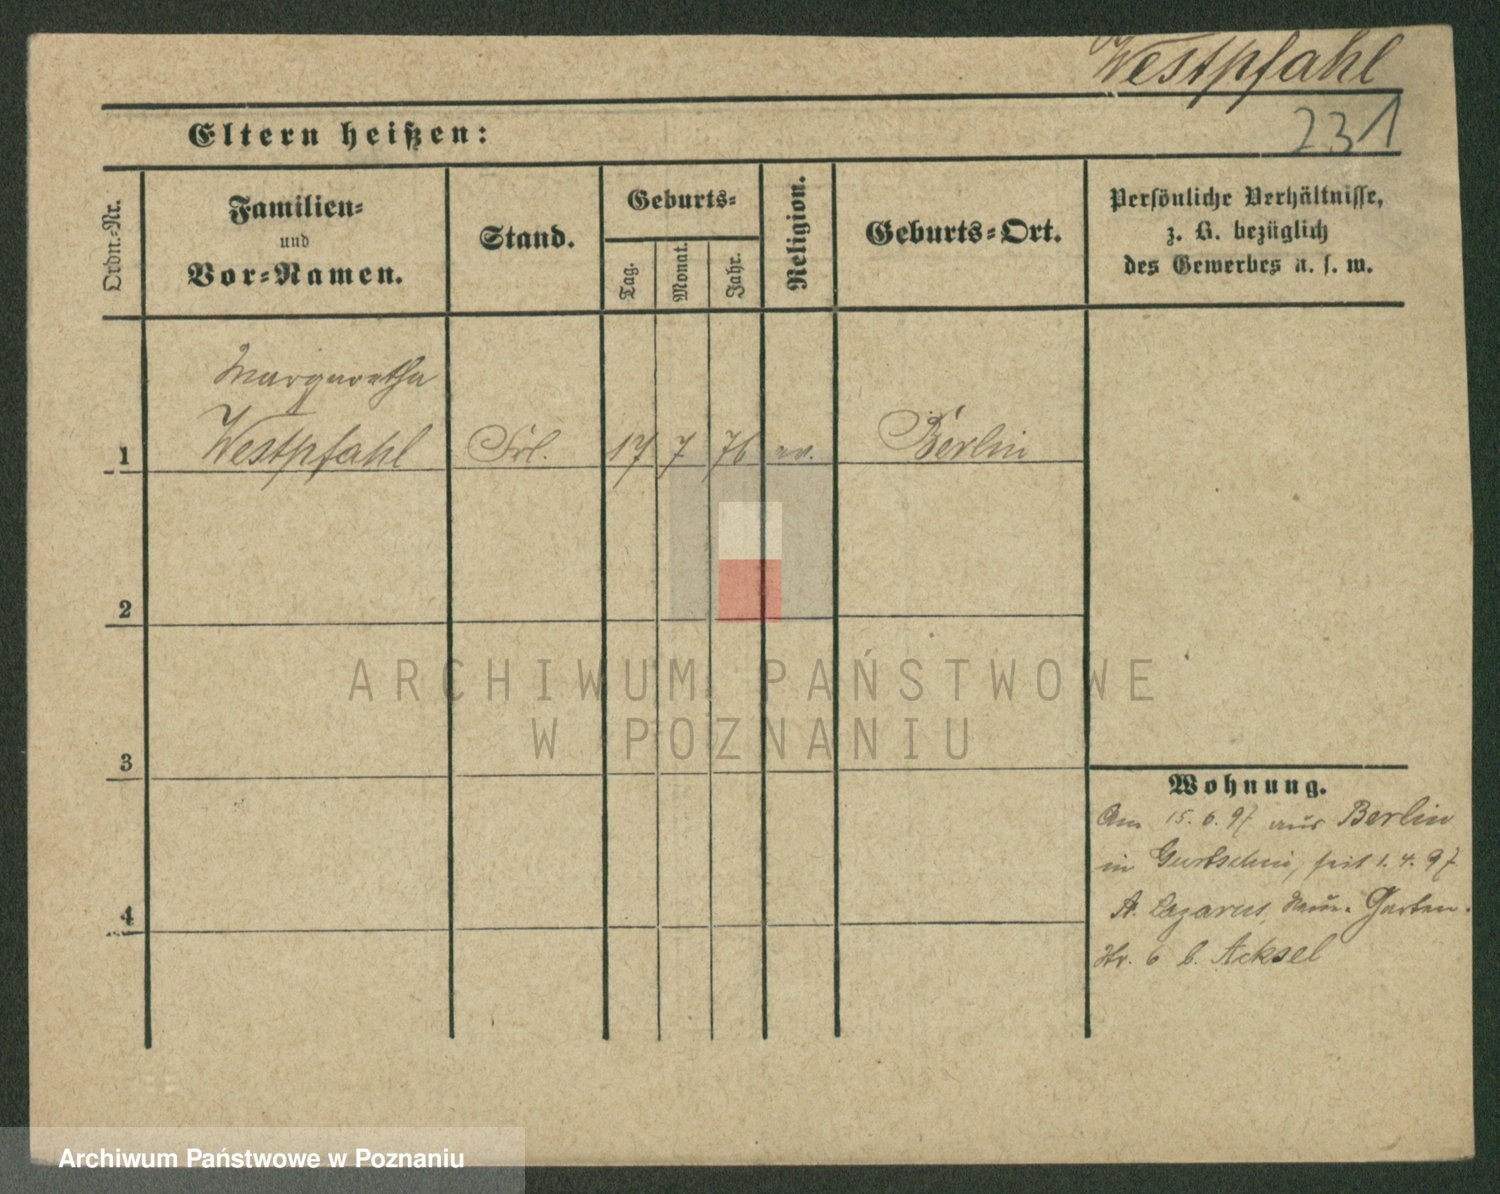 Westpfahl
231
Eltern heißen:
Ordn.-Nr.
Familien-
und
Vor-Namen.
Stand.
Geburts-
Tag.
Monat.
Jahr.
Religion.
Geburts-Ort.
Persönliche Verhältnisse,
z. B. bezüglich
des Gewerbes u. s. w.
Margaretha
1 Westpfahl Frl. 17 7 76 ev. Berlin
2
3
4
Wohnung.
Am 15. 6. 97 aus Berlin
in Gurtschin, seit 1. 4. 97
St. Lazarus, Garten-
Str. 6 b. Acksel
ARCHIWUM PAŃSTWOWE
W POZNANIU
Archiwum Państwowe w Poznaniu